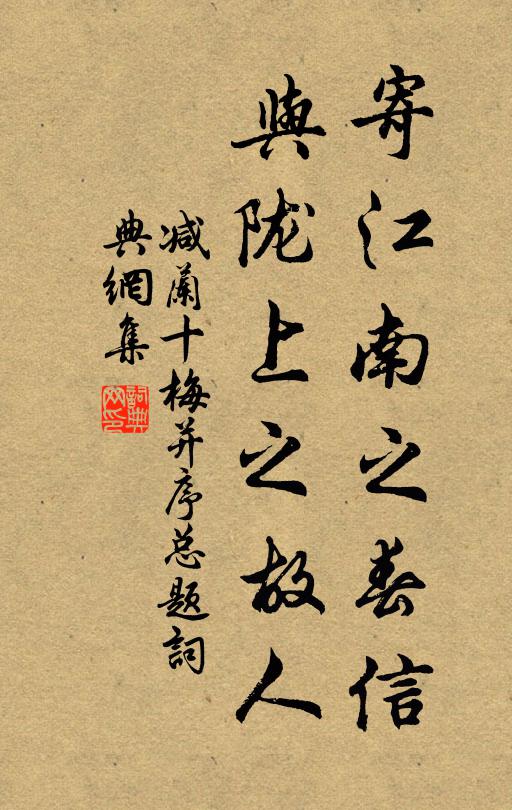 寄江南之春信
與陇上之故人
减蘭十梅并序总題詞
典網集
詞典网印